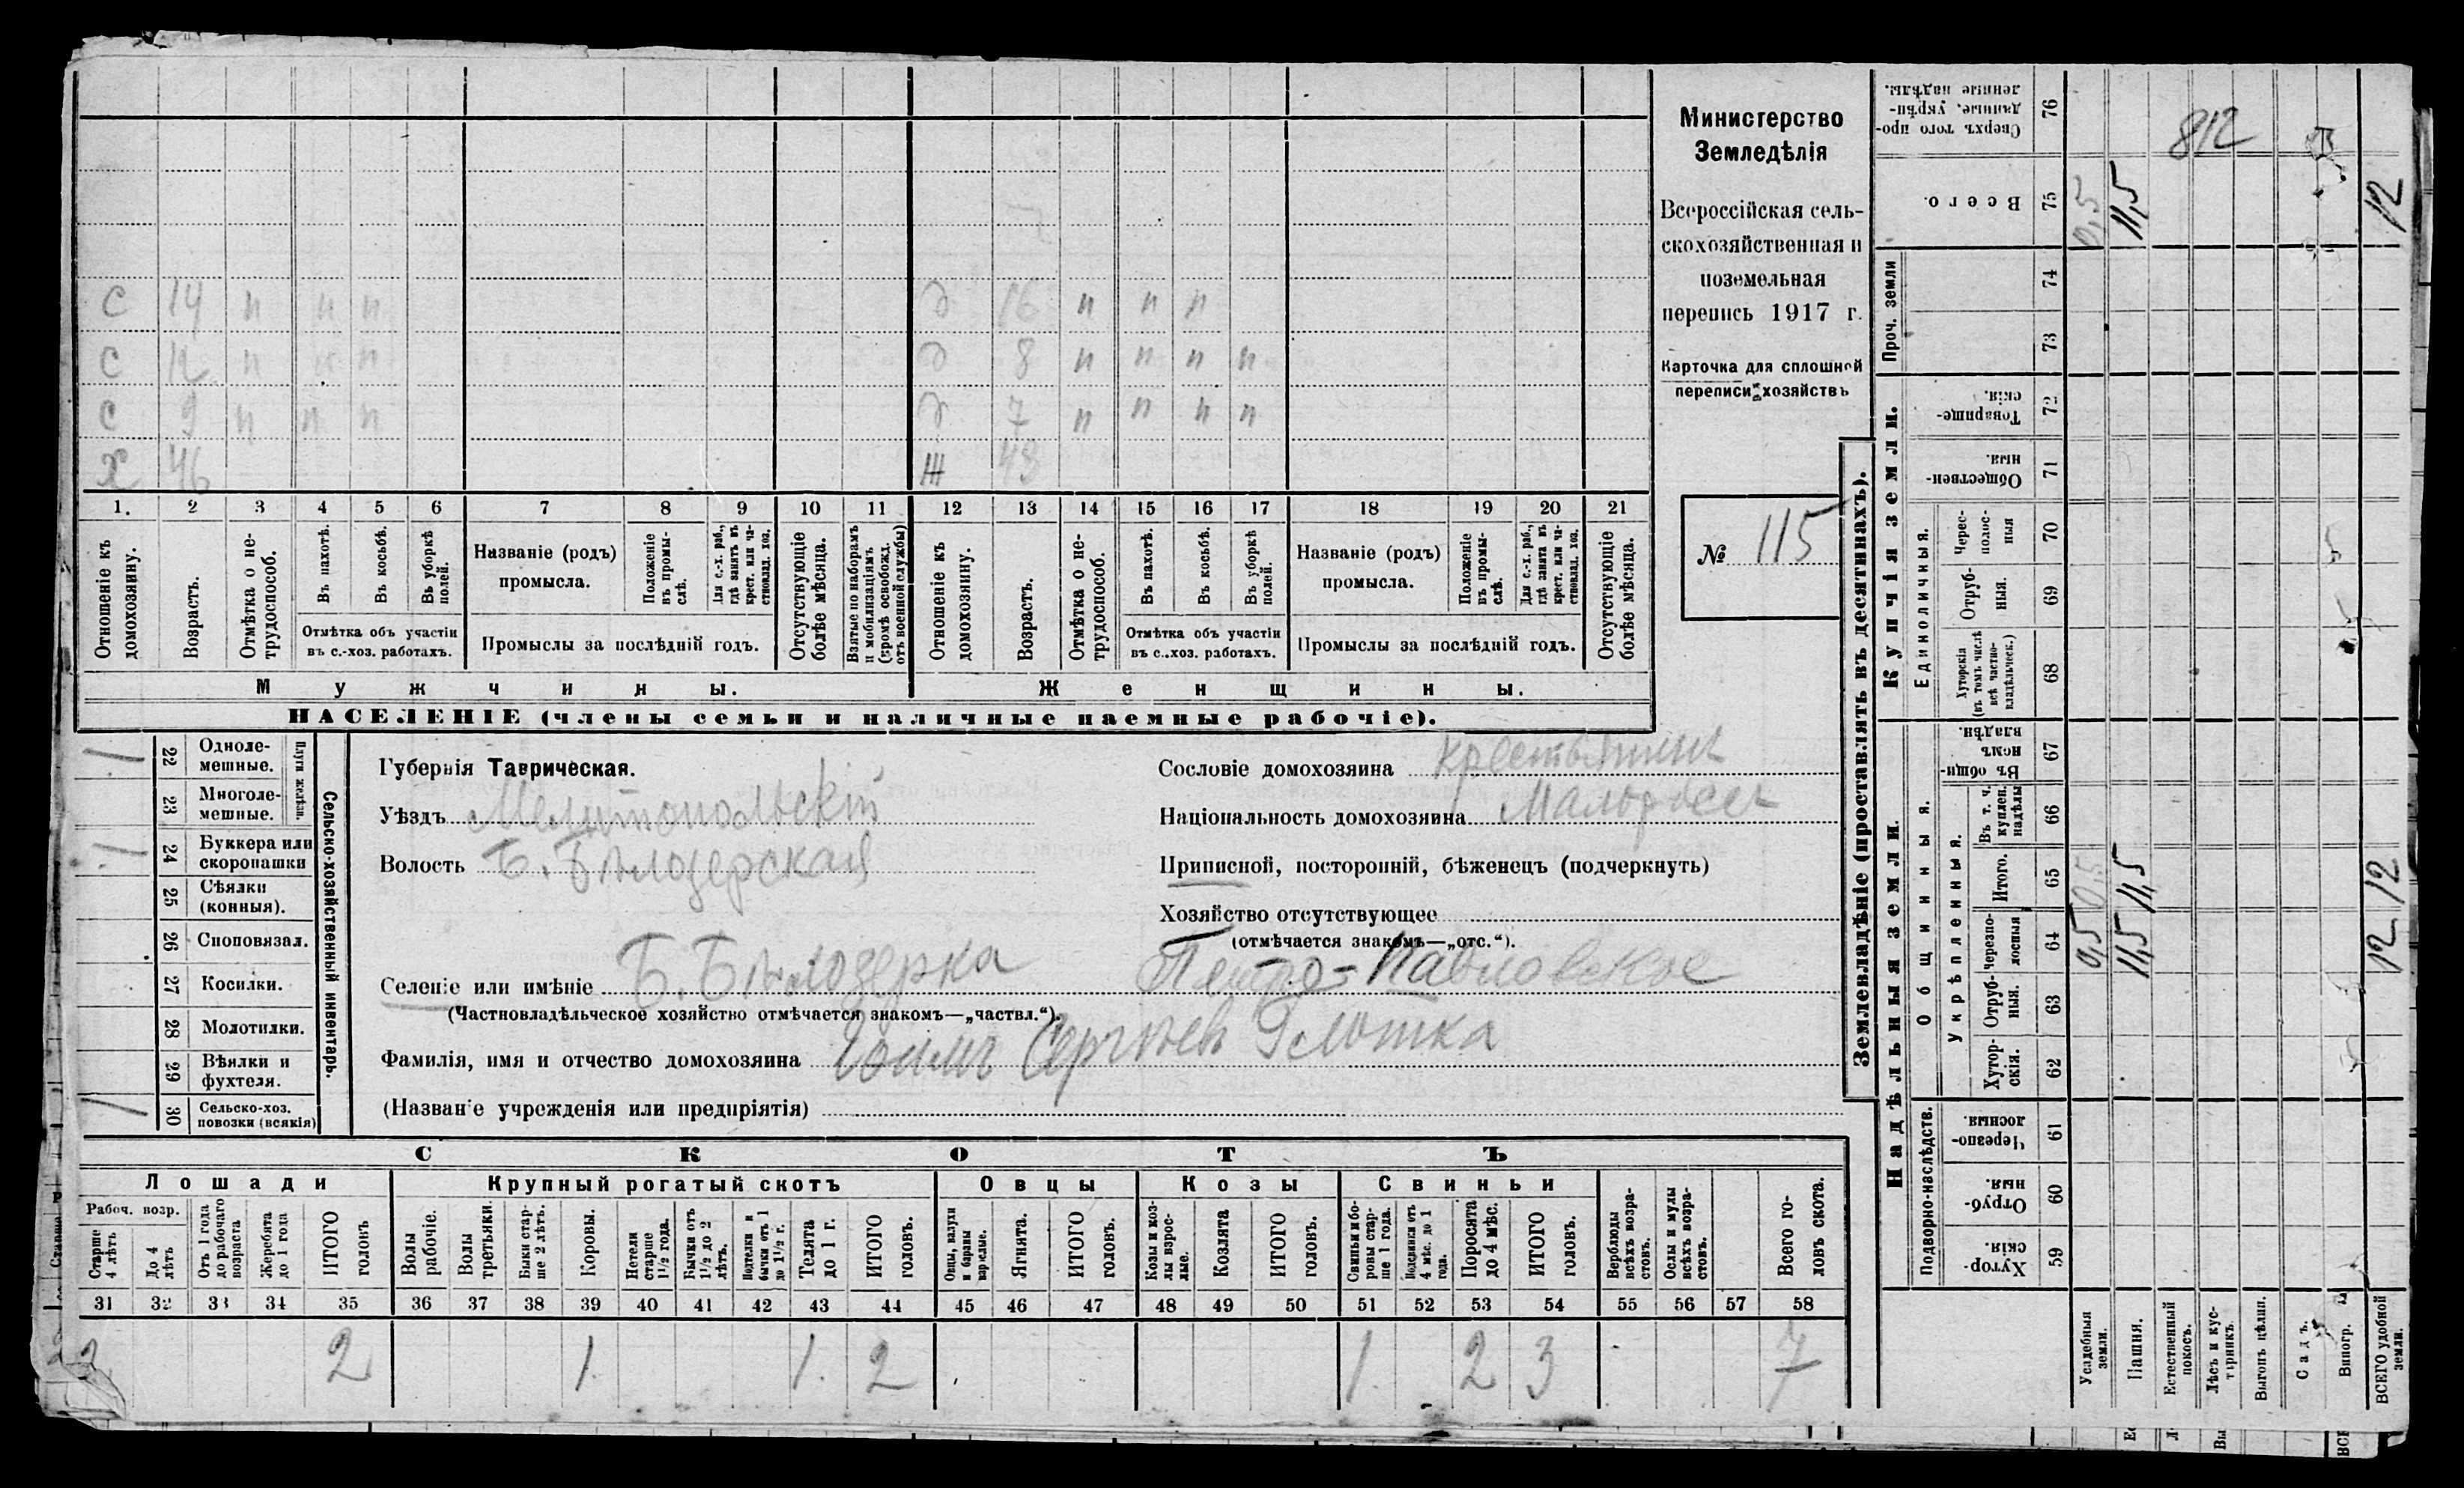 Министерство
Земледѣлія
Всероссійская сель-
скохозяйственная и
поземельная
перепись 1917 г.
Карточка для сплошной
переписи хозяйствъ
№ 115
812
с 14 н н н д 16 н н н
с 12 н н н д 8 н н н н
с 9 н н н д 7 н н н н
х 46 ж 43
1. 2 3 4 5 6 7 8 9 10 11 12 13 14 15 16 17 18 19 20 21
Отношеніе къ домохозяину.
Возрастъ.
Отмѣтка о не-трудоспособ.
Въ пахотѣ.
Въ косьбѣ.
Въ уборкѣ полей.
Отмѣтка объ участіи
въ с.-хоз. работахъ.
Названіе (родъ)
промысла.
Положеніе въ промы-слѣ.
Для с.-х. раб., гдѣ занятъ въ крест. или ча-стновлад. хоз.
Промыслы за послѣдній годъ.
Отсутствующіе болѣе мѣсяца.
Взятые по наборамъ и мобилизаціямъ (кромѣ освобожд. отъ военной службы)
Отношеніе къ домохозяину.
Возрастъ.
Отмѣтка о не-трудоспособ.
Въ пахотѣ.
Въ косьбѣ.
Въ уборкѣ полей.
Отмѣтка объ участіи
въ с.-хоз. работахъ.
Названіе (родъ)
промысла.
Положеніе въ промы-слѣ.
Для с.-х. раб., гдѣ занята въ крест. или ча-стновлад. хоз.
Промыслы за послѣдній годъ.
Отсутствующіе болѣе мѣсяца.
Мужчины. Женщины.
НАСЕЛЕНІЕ (члены семьи и наличные наемные рабочіе).
22 Одноле-мешные.
23 Многоле-мешные.
Плуги желѣзн.
24 Буккера или скоропашки
25 Сѣялки (конныя).
26 Сноповязал.
27 Косилки.
28 Молотилки.
29 Вѣялки и фухтеля.
30 Сельско-хоз. повозки (всякія)
Сельско-хозяйственный инвентарь.
Губернія Таврическая.
Уѣздъ Мелитопольскій
Волость Б. Бѣлозерская
Сословіе домохозяина крестьянинъ
Національность домохозяина Малоросс
Приписной, посторонній, бѣженецъ (подчеркнуть)
Хозяйство отсутствующее
(отмѣчается знакомъ—„отс.“).
Селеніе или имѣніе Б. Бѣлозерка Петро-Павловское
(Частновладѣльческое хозяйство отмѣчается знакомъ—„частвл.“).
Фамилія, имя и отчество домохозяина Сергѣевъ Глотка
(Названіе учрежденія или предпріятія)
СКОТЪ
Лошади Крупный рогатый скотъ Овцы Козы Свиньи
Рабоч. возр.
Старше 4 лѣтъ
До 4 лѣтъ
Отъ 1 года до рабочаго возраста
Жеребята до 1 года
ИТОГО головъ
Волы рабочіе.
Волы третьяки.
Быки стар-ше 2 лѣтъ.
Коровы.
Нетели старше 1½ года.
Бычки отъ 1½ до 2 лѣтъ.
Подтелки и бычки отъ 1 до 1½ г.
Телята до 1 г.
ИТОГО головъ.
Овцы, валухи и бараны взрослые.
Ягнята.
ИТОГО головъ.
Козы и коз-лы взрос-лые.
Козлята
ИТОГО головъ.
Свиньи и бо-ровы стар-ше 1 года.
Подсвинки отъ 4 мѣс. до 1 года.
Поросята до 4 мѣс.
ИТОГО головъ.
Верблюды всѣхъ возра-стовъ.
Ослы и мулы всѣхъ возра-стовъ.
Всего го-ловъ скота.
31 32 33 34 35 36 37 38 39 40 41 42 43 44 45 46 47 48 49 50 51 52 53 54 55 56 57 58
2 2 1 1 2 1 2 3 7
Землевладѣніе (проставлять въ десятинахъ).
Надѣльныя земли. Купчія земли. Проч. земли
Подворно-наслѣдств. Общинныя. Единоличныя.
Укрѣпленныя.
59 Хутор-скія.
60 Отруб-ныя.
61 Черезпо-лосныя
62 Хутор-скія.
63 Отруб-ныя.
64 Черезпо-лосныя
65 Итого.
66 Въ т. ч. куплен. надѣлы
67 Въ общи-номъ владѣн.
68 Хуторскія (въ томъ числѣ всѣ частно-владѣльческ.)
69 Отруб-ныя.
70 Черес-полос-ныя
71 Обществен-ныя.
72 Товарище-скія.
73
74
75 Всего.
76 Сверхъ того про-данные, укрѣп-ленные надѣлы.
Усадебныя земли. 0,5 0,5 0,5
Пашня. 11,5 11,5 11,5
Естественный покосъ.
Лѣсъ и кус-тарникъ.
Выгонъ цѣлин.
Садъ.
Виногр.
ВСЕГО удобной земли. 12 12 12